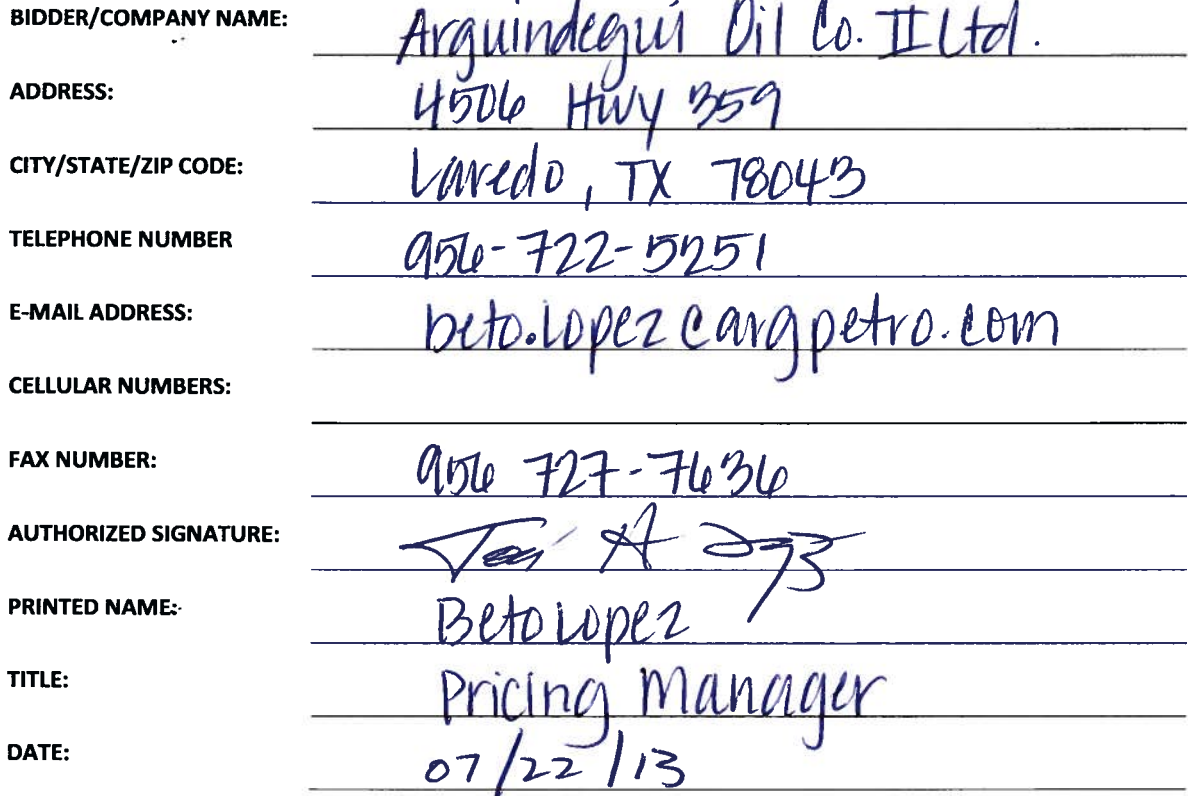 BIDDER/COMPANY NAME: Arguindegui Oil Co. II Ltd.
ADDRESS: 4506 Hwy 359
CITY/STATE/ZIP CODE: Laredo, TX 78043
TELEPHONE NUMBER 956-722-5251
E-MAIL ADDRESS: beto.lopez@argpetro.com
CELLULAR NUMBERS:
FAX NUMBER: 956 727-7636
AUTHORIZED SIGNATURE:
PRINTED NAME: Beto Lopez
TITLE: Pricing Manager
DATE: 07/22/13